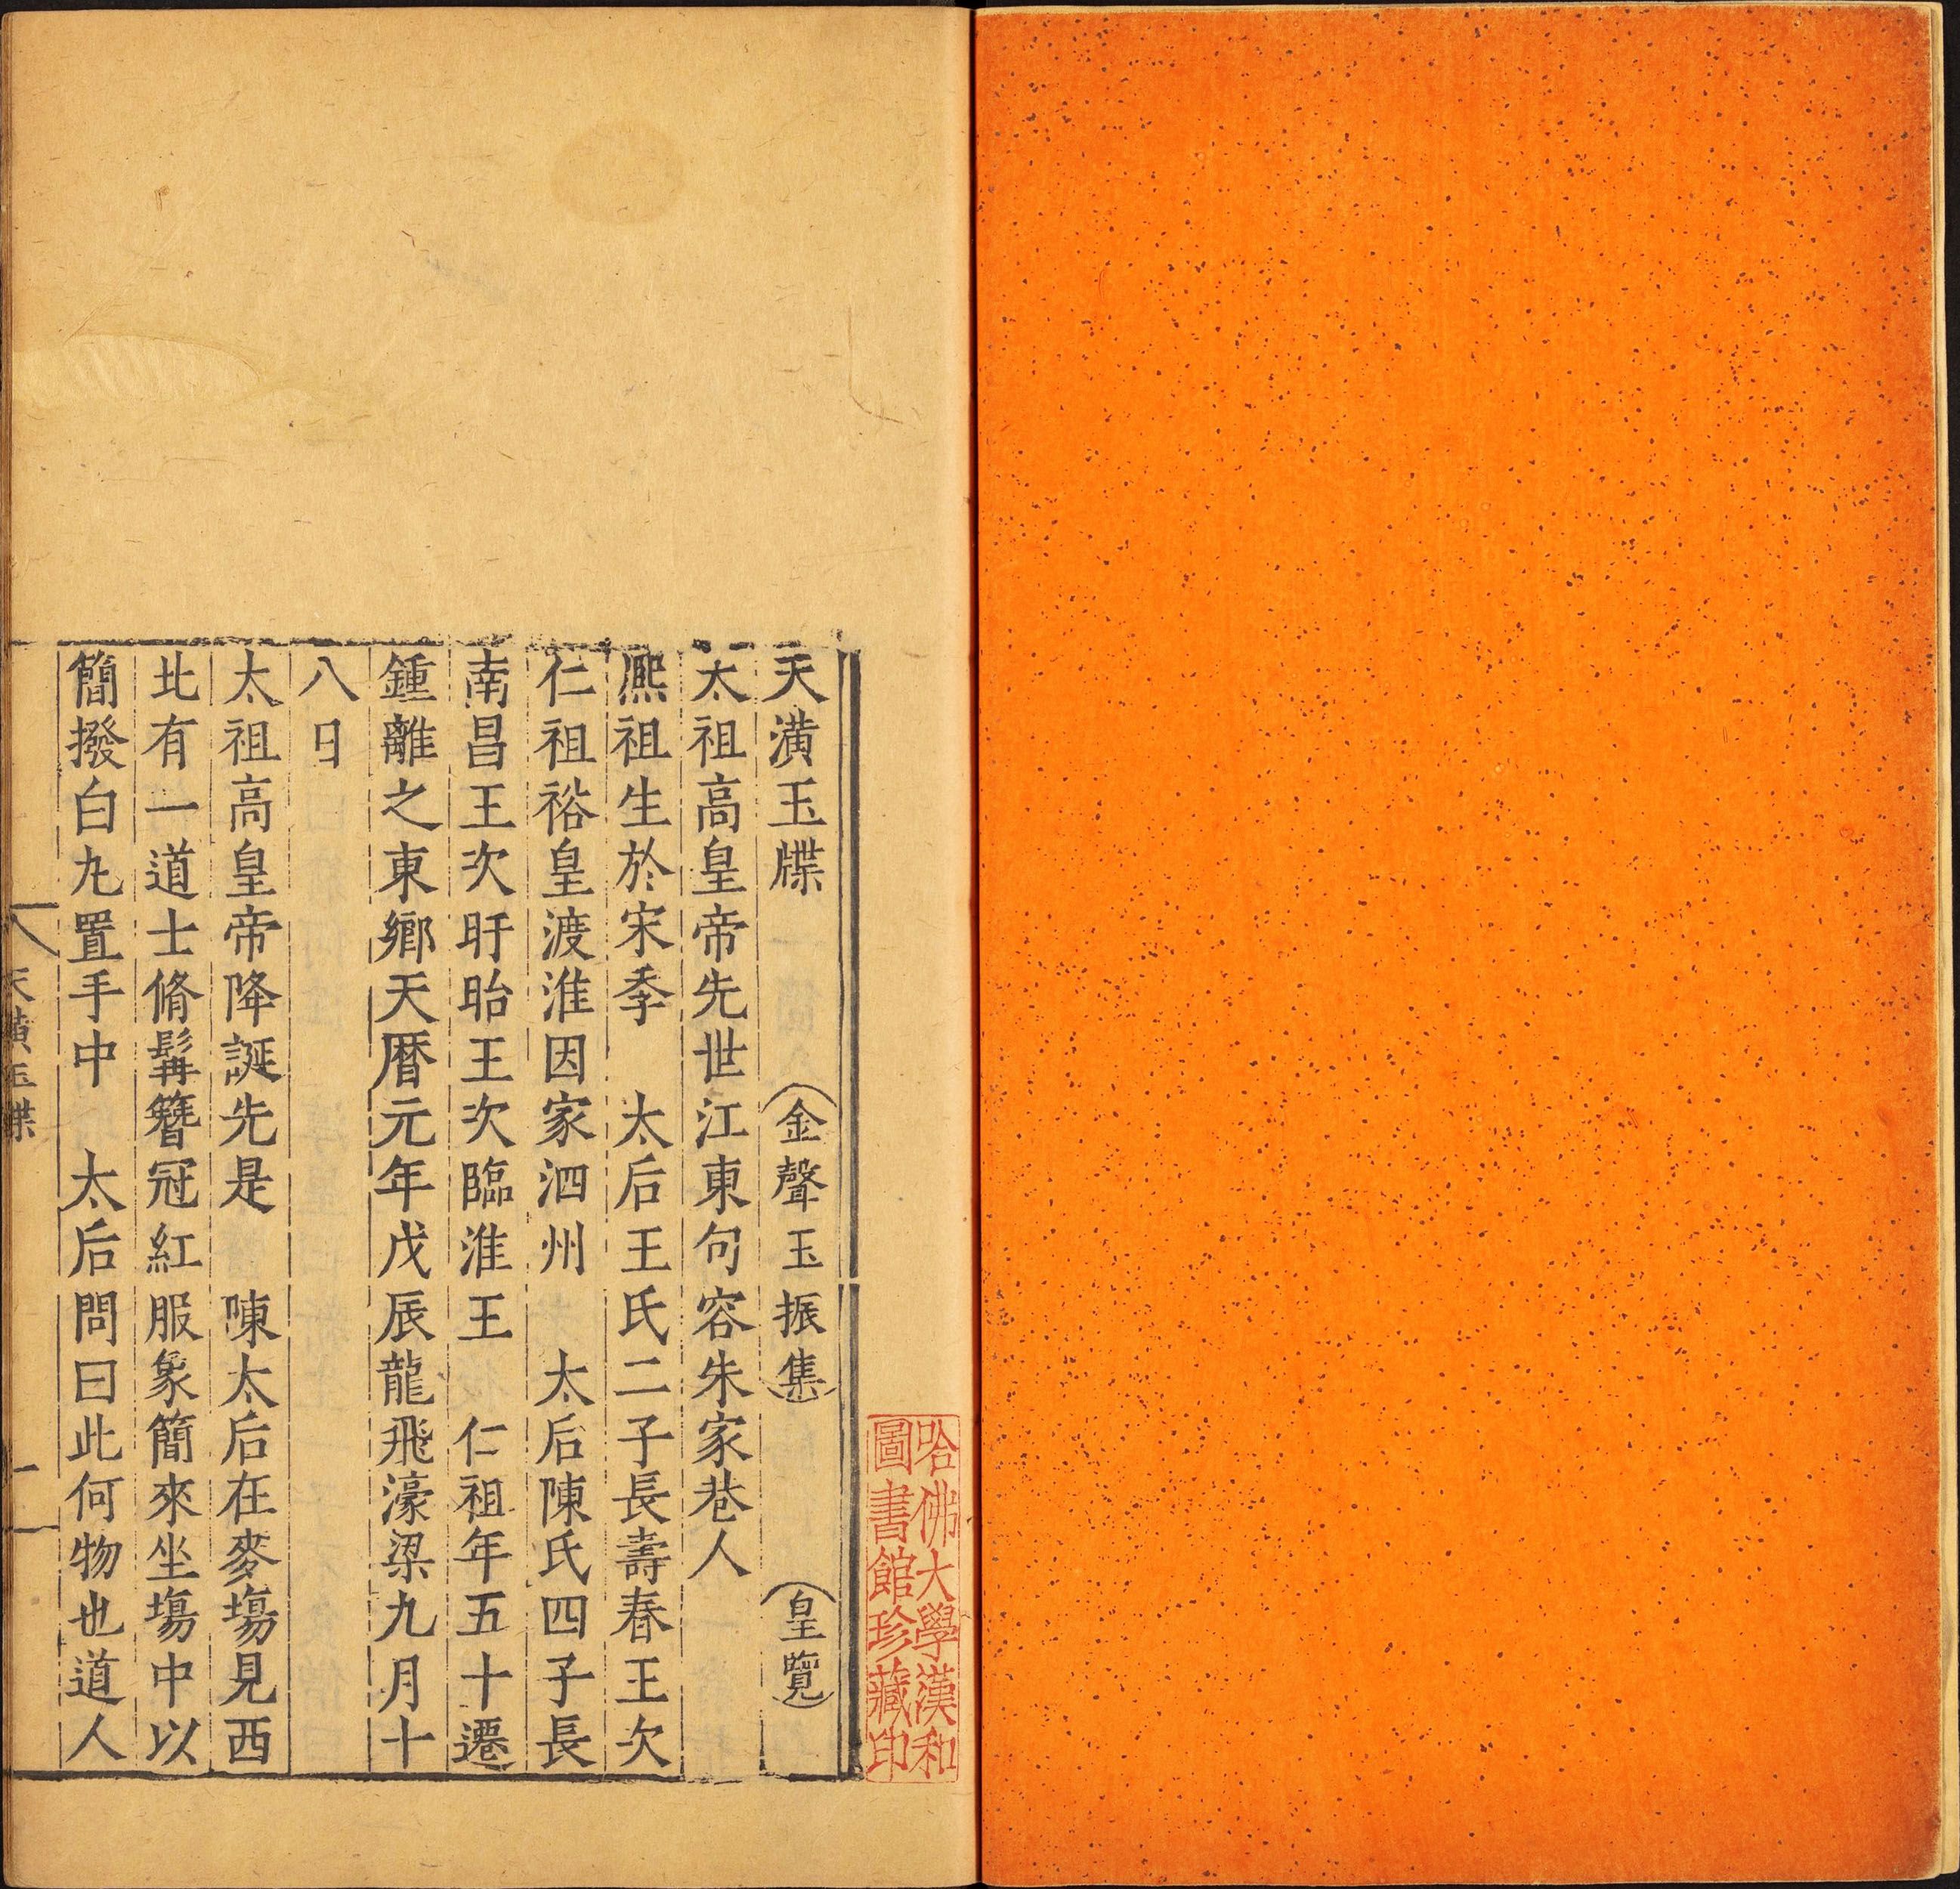 哈佛大學漢和
圖書館珍藏印
天潢玉牒 金聲玉振集 皇覽
太祖高皇帝先世江東句容朱家巷人
熈祖生於宋季 太后王氏二子長壽春王次
仁祖裕皇渡淮因家泗州 太后陳氏四子長
南昌王次盱眙王次臨淮王 仁祖年五十遷
鍾離之東鄉天曆元年戊辰龍飛濠梁九月十
八日
太祖高皇帝降誕先是 陳太后在麥塲見西
北有一道士脩髯簪冠紅服象簡來坐塲中以
簡撥白丸置手中 太后問曰此何物也道人
天潢玉牒 一